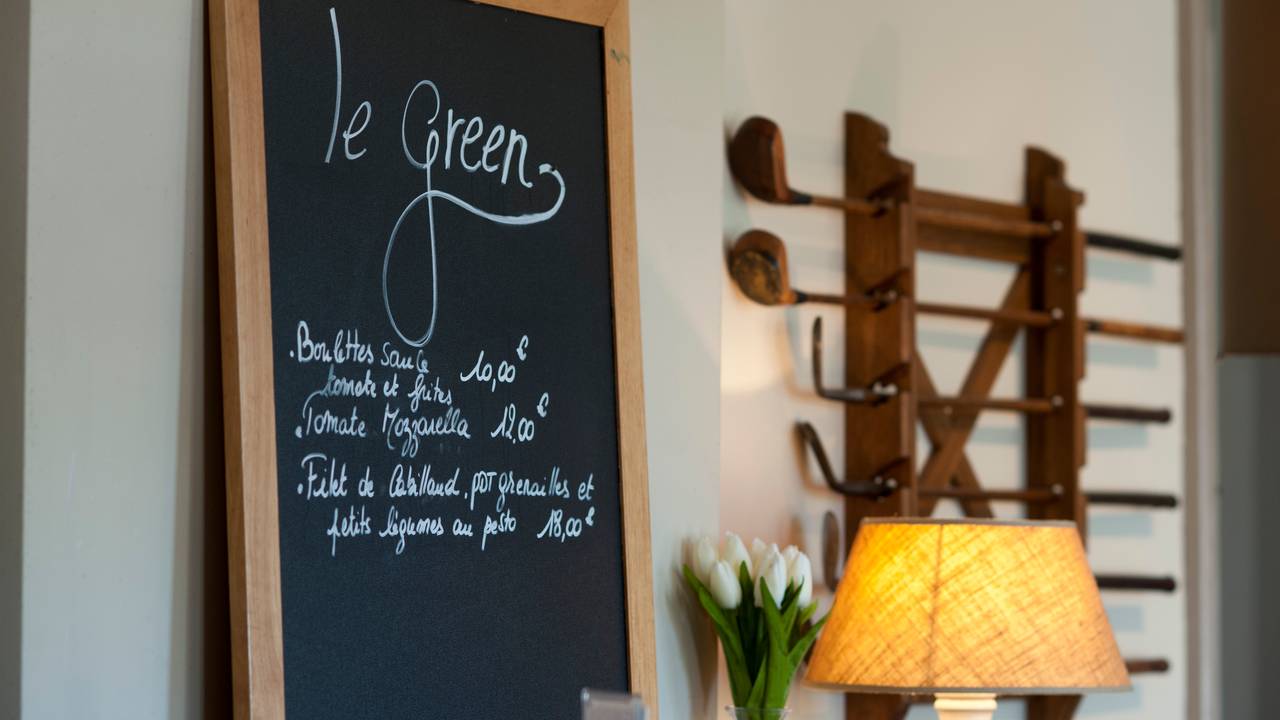 le Green
.Boulettes sauce 10,00€
tomate et frites
.Tomate Mozzarella 12,00€
.Filet de Cabillaud, PDT grenailles et
petits légumes au pesto 18,00€